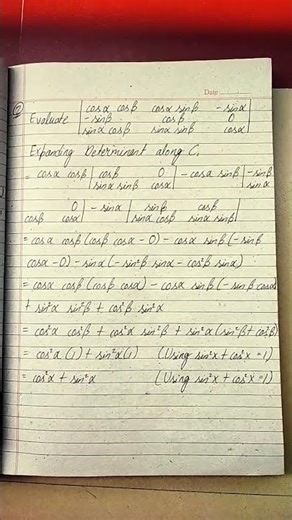 Date
Evaluate | cosα cosβ cosα sinβ -sinα |
| -sinβ cosβ 0 |
| sinα cosβ sinα sinβ cosα |
Expanding Determinant along C₁
= cosα cosβ | cosβ 0 | - cosα sinβ | -sinβ
| sinα sinβ cosα | | sinα
0 | - sinα | sinβ cosβ |
cosβ cosα | | sinα cosβ sinα sinβ |
= cosα cosβ (cosβ cosα - 0) - cosα sinβ (-sinβ
cosα - 0) - sinα (-sin²β sinα - cos²β sinα)
= cosα cosβ (cosβ cosα) - cosα sinβ (-sinβ cosα)
+ sin²α sin²β + cos²β sin²α
= cos²α cos²β + cos²α sin²β + sin²α (sin²β + cos²β)
= cos²α (1) + sin²α (1) (Using sin²x + cos²x = 1)
= cos²α + sin²α (Using sin²x + cos²x = 1)